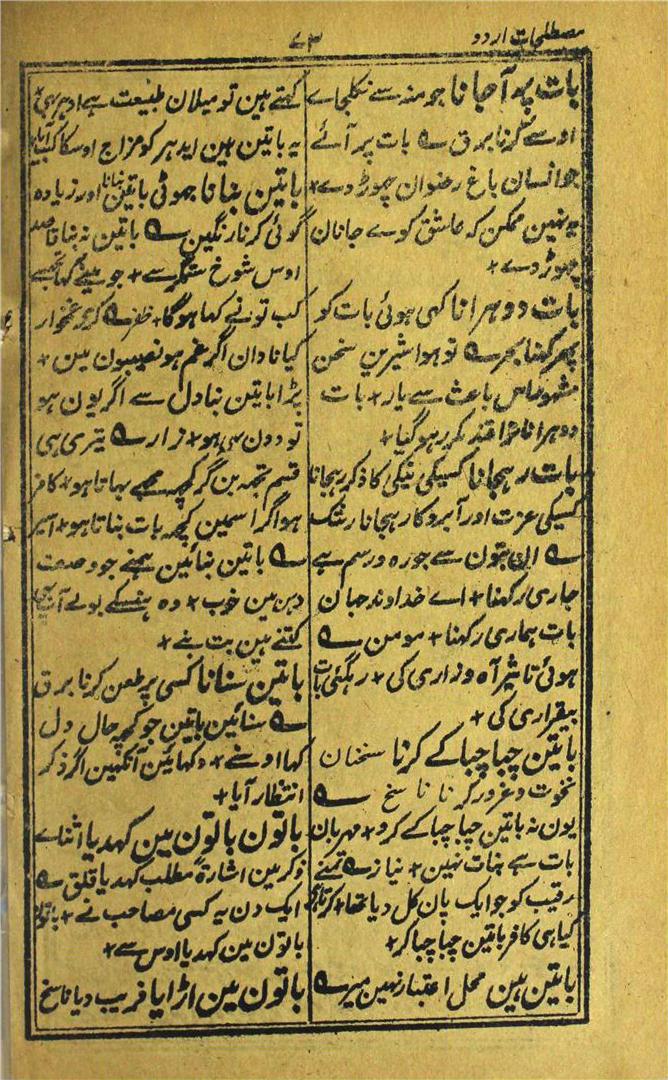 مصطلحات اردو
۷۳
بات پر آجانا جو منہ سے نکلجاے
اوسے کرنا برق ؎ بات پر آئے
جو انسان باغ رضوان چھوڑ دے +
یہ نہین ممکن کہ عاشق کوے جانان
چھوڑ دے +
بات دوہرانا کہی ہوئی بات کو
پھر کہنا بحر ؎ تو ہوا شیرین سخن
مشہور اس باعث سے یار + بات
دوہرانا ترا قند مکرر ہوگیا +
بات رہجانا کسیکی نیکی کا ذکر رہجانا
کسیکی عزت اور آبرو کا رہجانا رشک
؎ ان بتون سے جو رہ و رسم ہے
جاری رکھنا + اے خداوند جہان
بات ہماری رکھنا + مومن ؎
ہوئی تاثیر آہ و زاری کی + رہگئی بات
بیقراری کی +
باتین چبا چبا کے کرنا سخنان
نخوت و غرور کرنا ناسخ ؎
یون نہ باتین چبا چبا کے کرو + مہربان
بات ہے نبات نہین + نیاز ؎ تمنے
رقیب کو جو ایک پان کل دیا تھا + کرتا ہے
کیا ہی کافر باتین چبا چبا کر +
باتین ہین محل اعتبار نہین میر ؎
کہتے ہین تو میلان طبیعت ہے ادہر بھی +
یہ باتین ہین ایدہر کو مزاج اوسکا کب آیا +
باتین بنانا جھوٹی باتین بنانا اور زیادہ
گوئی کرنا رنگین ؎ باتین نہ بنا قاصد
اوس شوخ ستمگر سے + جو مینے کہا تجھسے
کب تونے کہا ہوگا + ظفر ؎ کرے غمخوار
کیا نادان اگر غم ہو نصیبون مین +
پڑا باتین بنا دل سے اگر یون ہو
تو وون ہی ہو + زار ؎ تیری ہی
قسم تجھ بن گر کچھ مجھے بھاتا ہو + کافر
ہو اگر اسمین کچھ بات بناتا ہو + اسیر
؎ باتین بنائین ہمنے جو وصف
دہن مین خوب + وہ ہنسکے بولے آپ بھی
کتنے ہین بت بنے +
باتین سنانا کسی پر طعن کرنا برق
؎ سنائین باتین جو کچھ حال دل
کہا اوسنے + دکھائین آنکھین اگر ذکر
انتظار آیا +
باتون باتون مین کہدیا اثناے
ذکر مین اشارۃً مطلب کہدیا قلق ؎
ایک دن یہ کسی مصاحب نے + باتون
باتون مین کہدیا اوس سے +
باتون مین اڑایا فریب دیا ناسخ